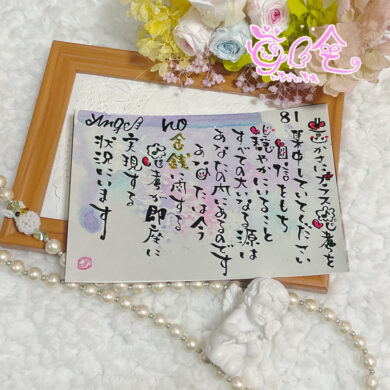 Angel no 81
豊かさにプラス思考を
集中していてください
自信をもち
穏やかにいること
すべての大いなる源は
あなたの内にあるのです
あなたは今
金銭に関する
思考が即座に
実現する
状況にいます